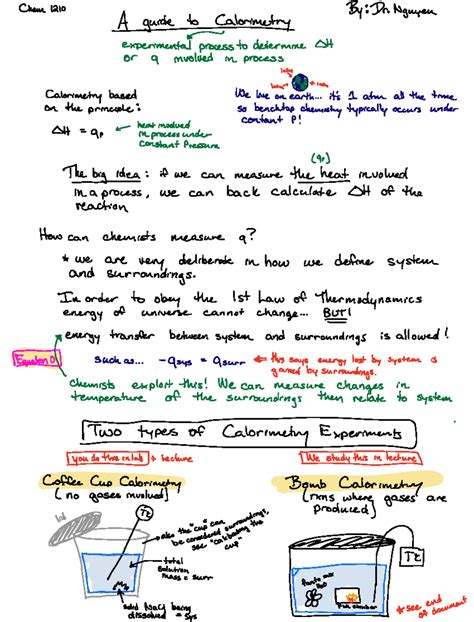 Chem 1210
A guide to Calorimetry
By: Dr. Nguyen
experimental process to determine ΔH
or q involved in process
Calorimetry based
on the principle:
ΔH = qp
heat involved
in process under
constant pressure
We live on earth... it's 1 atm all the time
so benchtop chemistry typically occurs under
constant P!
(qp)
The big idea: if we can measure the heat involved
in a process, we can back calculate ΔH of the
reaction
How can chemists measure q?
* we are very deliberate in how we define system
and surroundings.
In order to obey the 1st Law of Thermodynamics
energy of universe cannot change... BUT!
energy transfer between system and surroundings is allowed!
Equation 0
such as... -qsys = qsurr
this says energy lost by system is
gained by surroundings.
chemists exploit this! We can measure changes in
temperature of the surroundings then relate to system
Two types of Calorimetry Experiments
you do this in lab + lecture
We study this in lecture
Coffee Cup Calorimetry
(no gases involved)
Bomb Calorimetry
(rxns where gases are
produced)
lid
also the "cup" can
be considered surroundings,
see "calibrating the
cup"
total
solution
mass = surr
solid NaCl being
dissolved = sys
* see end
of document